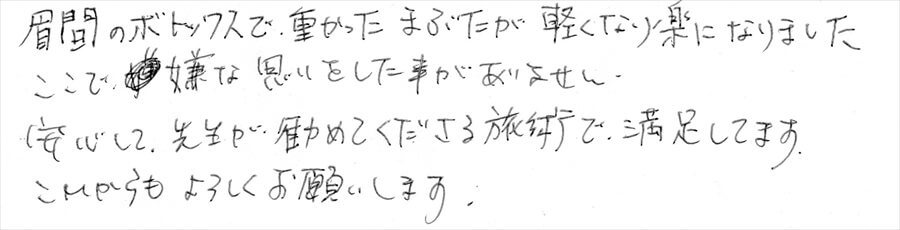 眉間のボトックスで、重かった まぶたが 軽くなり楽になりました
ここで、嫌な思いをした事がありません.
安心して、先生が勧めてくださる施術で、満足してます.
これからも よろしく お願いします.